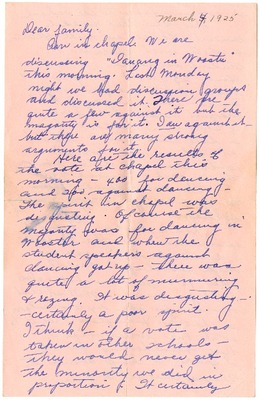 March 4, 1925
Dear family:
Am in chapel. We are
discussing "Dancing in Wooster"
this morning. Last Monday
night we had discussion groups
and discussed it. There are
quite a few against it but the
majority is for it. I am against it
but there are many strong
arguments for it.
Here are the results of
the vote at chapel this
morning - was for dancing
and against dancing -
The spirit in chapel was
disgusting. Of course the
majority was for dancing in
Wooster and when the
student speakers against
dancing got up - there was
quite a lot of murmuring
& razing. It was disgusting -
- certainly a poor spirit.
I think - if a vote was
taken in other schools -
they would never get
the minority we did in
proportion & It certainly